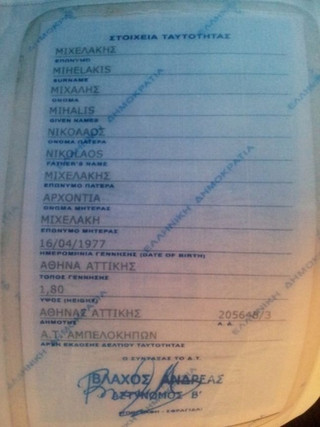 ΣΤΟΙΧΕΙΑ ΤΑΥΤΟΤΗΤΑΣ
ΜΙΧΕΛΑΚΗΣ
ΕΠΩΝΥΜΟ
MIHELAKIS
SURNAME
ΜΙΧΑΛΗΣ
ΟΝΟΜΑ
MIHALIS
GIVEN NAMES
ΝΙΚΟΛΑΟΣ
ΟΝΟΜΑ ΠΑΤΕΡΑ
NIKOLAOS
FATHER'S NAME
ΜΙΧΕΛΑΚΗΣ
ΕΠΩΝΥΜΟ ΠΑΤΕΡΑ
ΑΡΧΟΝΤΙΑ
ΟΝΟΜΑ ΜΗΤΕΡΑΣ
ΜΙΧΕΛΑΚΗ
ΕΠΩΝΥΜΟ ΜΗΤΕΡΑΣ
16/04/1977
ΗΜΕΡΟΜΗΝΙΑ ΓΕΝΝΗΣΗΣ (DATE OF BIRTH)
ΑΘΗΝΑ ΑΤΤΙΚΗΣ
ΤΟΠΟΣ ΓΕΝΝΗΣΗΣ
1,80
ΥΨΟΣ (HEIGHT)
ΑΘΗΝΑΣ ΑΤΤΙΚΗΣ 205648/3
ΔΗΜΟΤΗΣ Α.Α.
Α.Τ. ΑΜΠΕΛΟΚΗΠΩΝ
ΑΡΧΗ ΕΚΔΟΣΗΣ ΔΕΛΤΙΟΥ ΤΑΥΤΟΤΗΤΑΣ
Ο ΣΥΝΤΑΞΑΣ ΤΟ Δ.Τ.
ΒΛΑΧΟΣ ΑΝΔΡΕΑΣ
ΑΣΤΥΝΟΜΟΣ Β'
ΕΛΛΗΝΙΚΗ ΔΗΜΟΚΡΑΤΙΑ